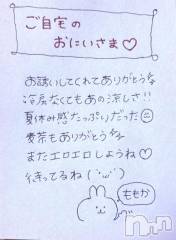 ご自宅の
おにいさま♡
お誘いしてくれてありがとう
冷房なくてもあの涼しさ!!
夏休み感たっぷりだった
麦茶もありがとう
またエロエロしようね♡
待ってるね('ω')
ももか